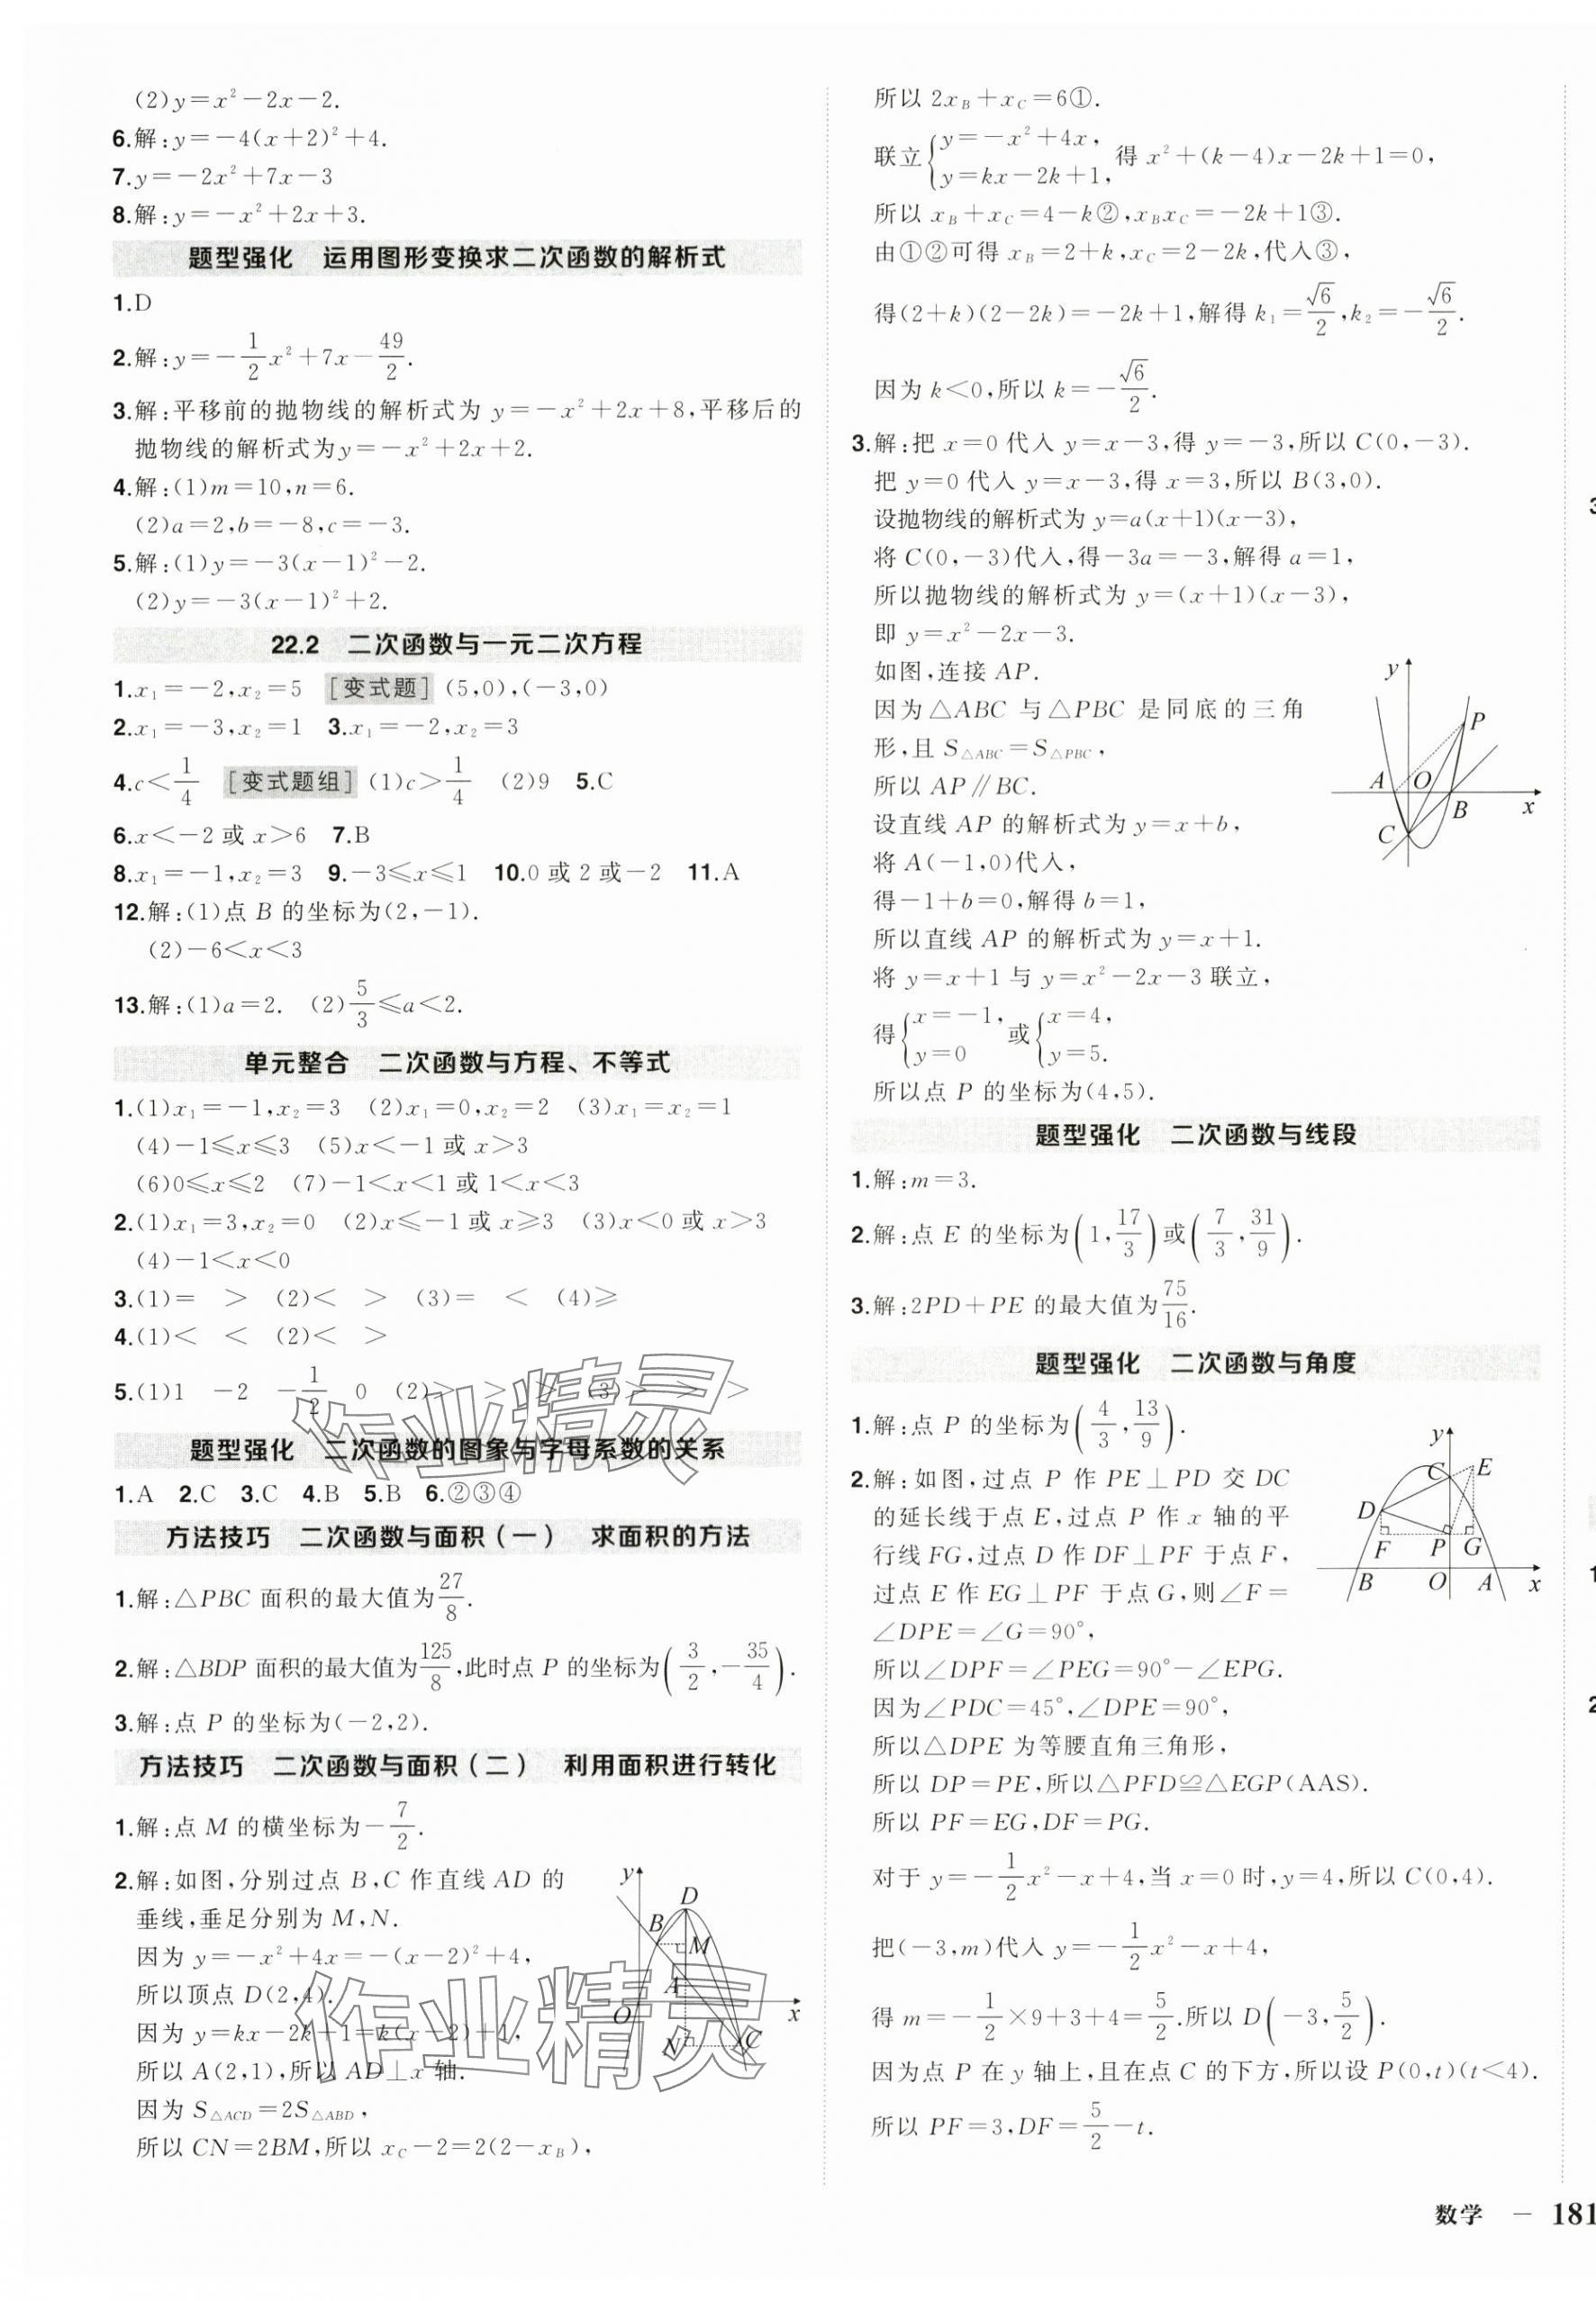 (2)y=x²-2x-2.
6.解:y=-4(x+2)²+4.
7.y=-2x²+7x-3
8.解:y=-x²+2x+3.
题型强化 运用图形变换求二次函数的解析式
1.D
2.解:y=-1/2x²+7x-49/2.
3.解:平移前的抛物线的解析式为 y=-x²+2x+8,平移后的
抛物线的解析式为y=-x²+2x+2.
4.解:(1)m=10,n=6.
(2)a=2,b=-8,c=-3.
5.解:(1)y=-3(x-1)²-2.
(2)y=-3(x-1)²+2.
22.2 二次函数与一元二次方程
1.x₁=-2,x₂=5 [变式题] (5,0),(-3,0)
2.x₁=-3,x₂=1 3.x₁=-2,x₂=3
4.c<1/4 [变式题组] (1)c>1/4 (2)9 5.C
6.x<-2 或 x>6 7.B
8.x₁=-1,x₂=3 9.-3≤x≤1 10.0 或 2 或-2 11.A
12.解:(1)点 B 的坐标为(2,-1).
(2)-6<x<3
13.解:(1)a=2. (2)5/3≤a<2.
单元整合 二次函数与方程、不等式
1.(1)x₁=-1,x₂=3 (2)x₁=0,x₂=2 (3)x₁=x₂=1
(4)-1≤x≤3 (5)x<-1 或 x>3
(6)0≤x≤2 (7)-1<x<1 或 1<x<3
2.(1)x₁=3,x₂=0 (2)x≤-1 或 x≥3 (3)x<0 或 x>3
(4)-1<x<0
3.(1)= > (2)< > (3)= < (4)≥
4.(1)< < (2)< >
5.(1)1 -2 -1/2 0 (2)> > > (3)> > >
题型强化 二次函数的图象与字母系数的关系
1.A 2.C 3.C 4.B 5.B 6.②③④
方法技巧 二次函数与面积(一) 求面积的方法
1.解:△PBC 面积的最大值为27/8.
2.解:△BDP 面积的最大值为125/8,此时点 P 的坐标为(3/2,-35/4).
3.解:点 P 的坐标为(-2,2).
方法技巧 二次函数与面积(二) 利用面积进行转化
1.解:点 M 的横坐标为-7/2.
2.解:如图,分别过点 B,C 作直线 AD 的
垂线,垂足分别为 M,N.
因为 y=-x²+4x=-(x-2)²+4,
所以顶点 D(2,4).
因为 y=kx-2k+1=k(x-2)+1,
所以 A(2,1),所以 AD⊥x 轴.
因为 S△ACD=2S△ABD,
所以 CN=2BM,所以 x_C-2=2(2-x_B),
y D B M A O x N C
作业精灵
作业精灵
所以 2x_B+x_C=6①.
联立{y=-x²+4x, y=kx-2k+1, 得 x²+(k-4)x-2k+1=0,
所以 x_B+x_C=4-k②,x_Bx_C=-2k+1③.
由①②可得 x_B=2+k,x_C=2-2k,代入③,
得(2+k)(2-2k)=-2k+1,解得 k₁=√6/2,k₂=-√6/2.
因为 k<0,所以 k=-√6/2.
3.解:把 x=0 代入 y=x-3,得 y=-3,所以 C(0,-3).
把 y=0 代入 y=x-3,得 x=3,所以 B(3,0).
设抛物线的解析式为 y=a(x+1)(x-3),
将 C(0,-3)代入,得-3a=-3,解得 a=1,
所以抛物线的解析式为 y=(x+1)(x-3),
即 y=x²-2x-3.
如图,连接 AP.
因为△ABC 与△PBC 是同底的三角
形,且 S△ABC=S△PBC,
所以 AP∥BC.
设直线 AP 的解析式为 y=x+b,
将 A(-1,0)代入,
得-1+b=0,解得 b=1,
所以直线 AP 的解析式为 y=x+1.
将 y=x+1 与 y=x²-2x-3 联立,
得{x=-1, y=0 或{x=4, y=5.
所以点 P 的坐标为(4,5).
y P A O B x C
题型强化 二次函数与线段
1.解:m=3.
2.解:点 E 的坐标为(1,17/3)或(7/3,31/9).
3.解:2PD+PE 的最大值为75/16.
题型强化 二次函数与角度
1.解:点 P 的坐标为(4/3,13/9).
2.解:如图,过点 P 作 PE⊥PD 交 DC
的延长线于点 E,过点 P 作 x 轴的平
行线 FG,过点 D 作 DF⊥PF 于点 F,
过点 E 作 EG⊥PF 于点 G,则∠F=
∠DPE=∠G=90°,
所以∠DPF=∠PEG=90°-∠EPG.
因为∠PDC=45°,∠DPE=90°,
所以△DPE 为等腰直角三角形,
所以 DP=PE,所以△PFD≌△EGP(AAS).
所以 PF=EG,DF=PG.
对于 y=-1/2x²-x+4,当 x=0 时,y=4,所以 C(0,4).
把(-3,m)代入 y=-1/2x²-x+4,
得 m=-1/2×9+3+4=5/2.所以 D(-3,5/2).
因为点 P 在 y 轴上,且在点 C 的下方,所以设 P(0,t)(t<4).
所以 PF=3,DF=5/2-t.
y C E D F P G B O A x
数学 — 181